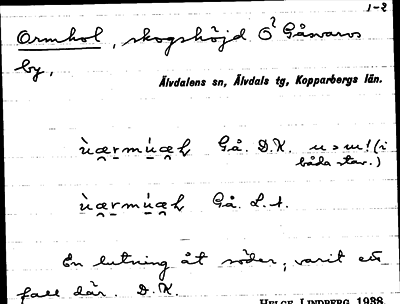 1-2
Ormhol, skogshöjd Ö? Gåsvarvs
by,
Älvdalens sn, Älvdals tg, Kopparbergs län.
Gå. D.K. u > w! (i
båda stav.)
Gå. L.A.
En lutning åt söder, varit ett
fall där. D.K.
HELGE LINDBERG 1938